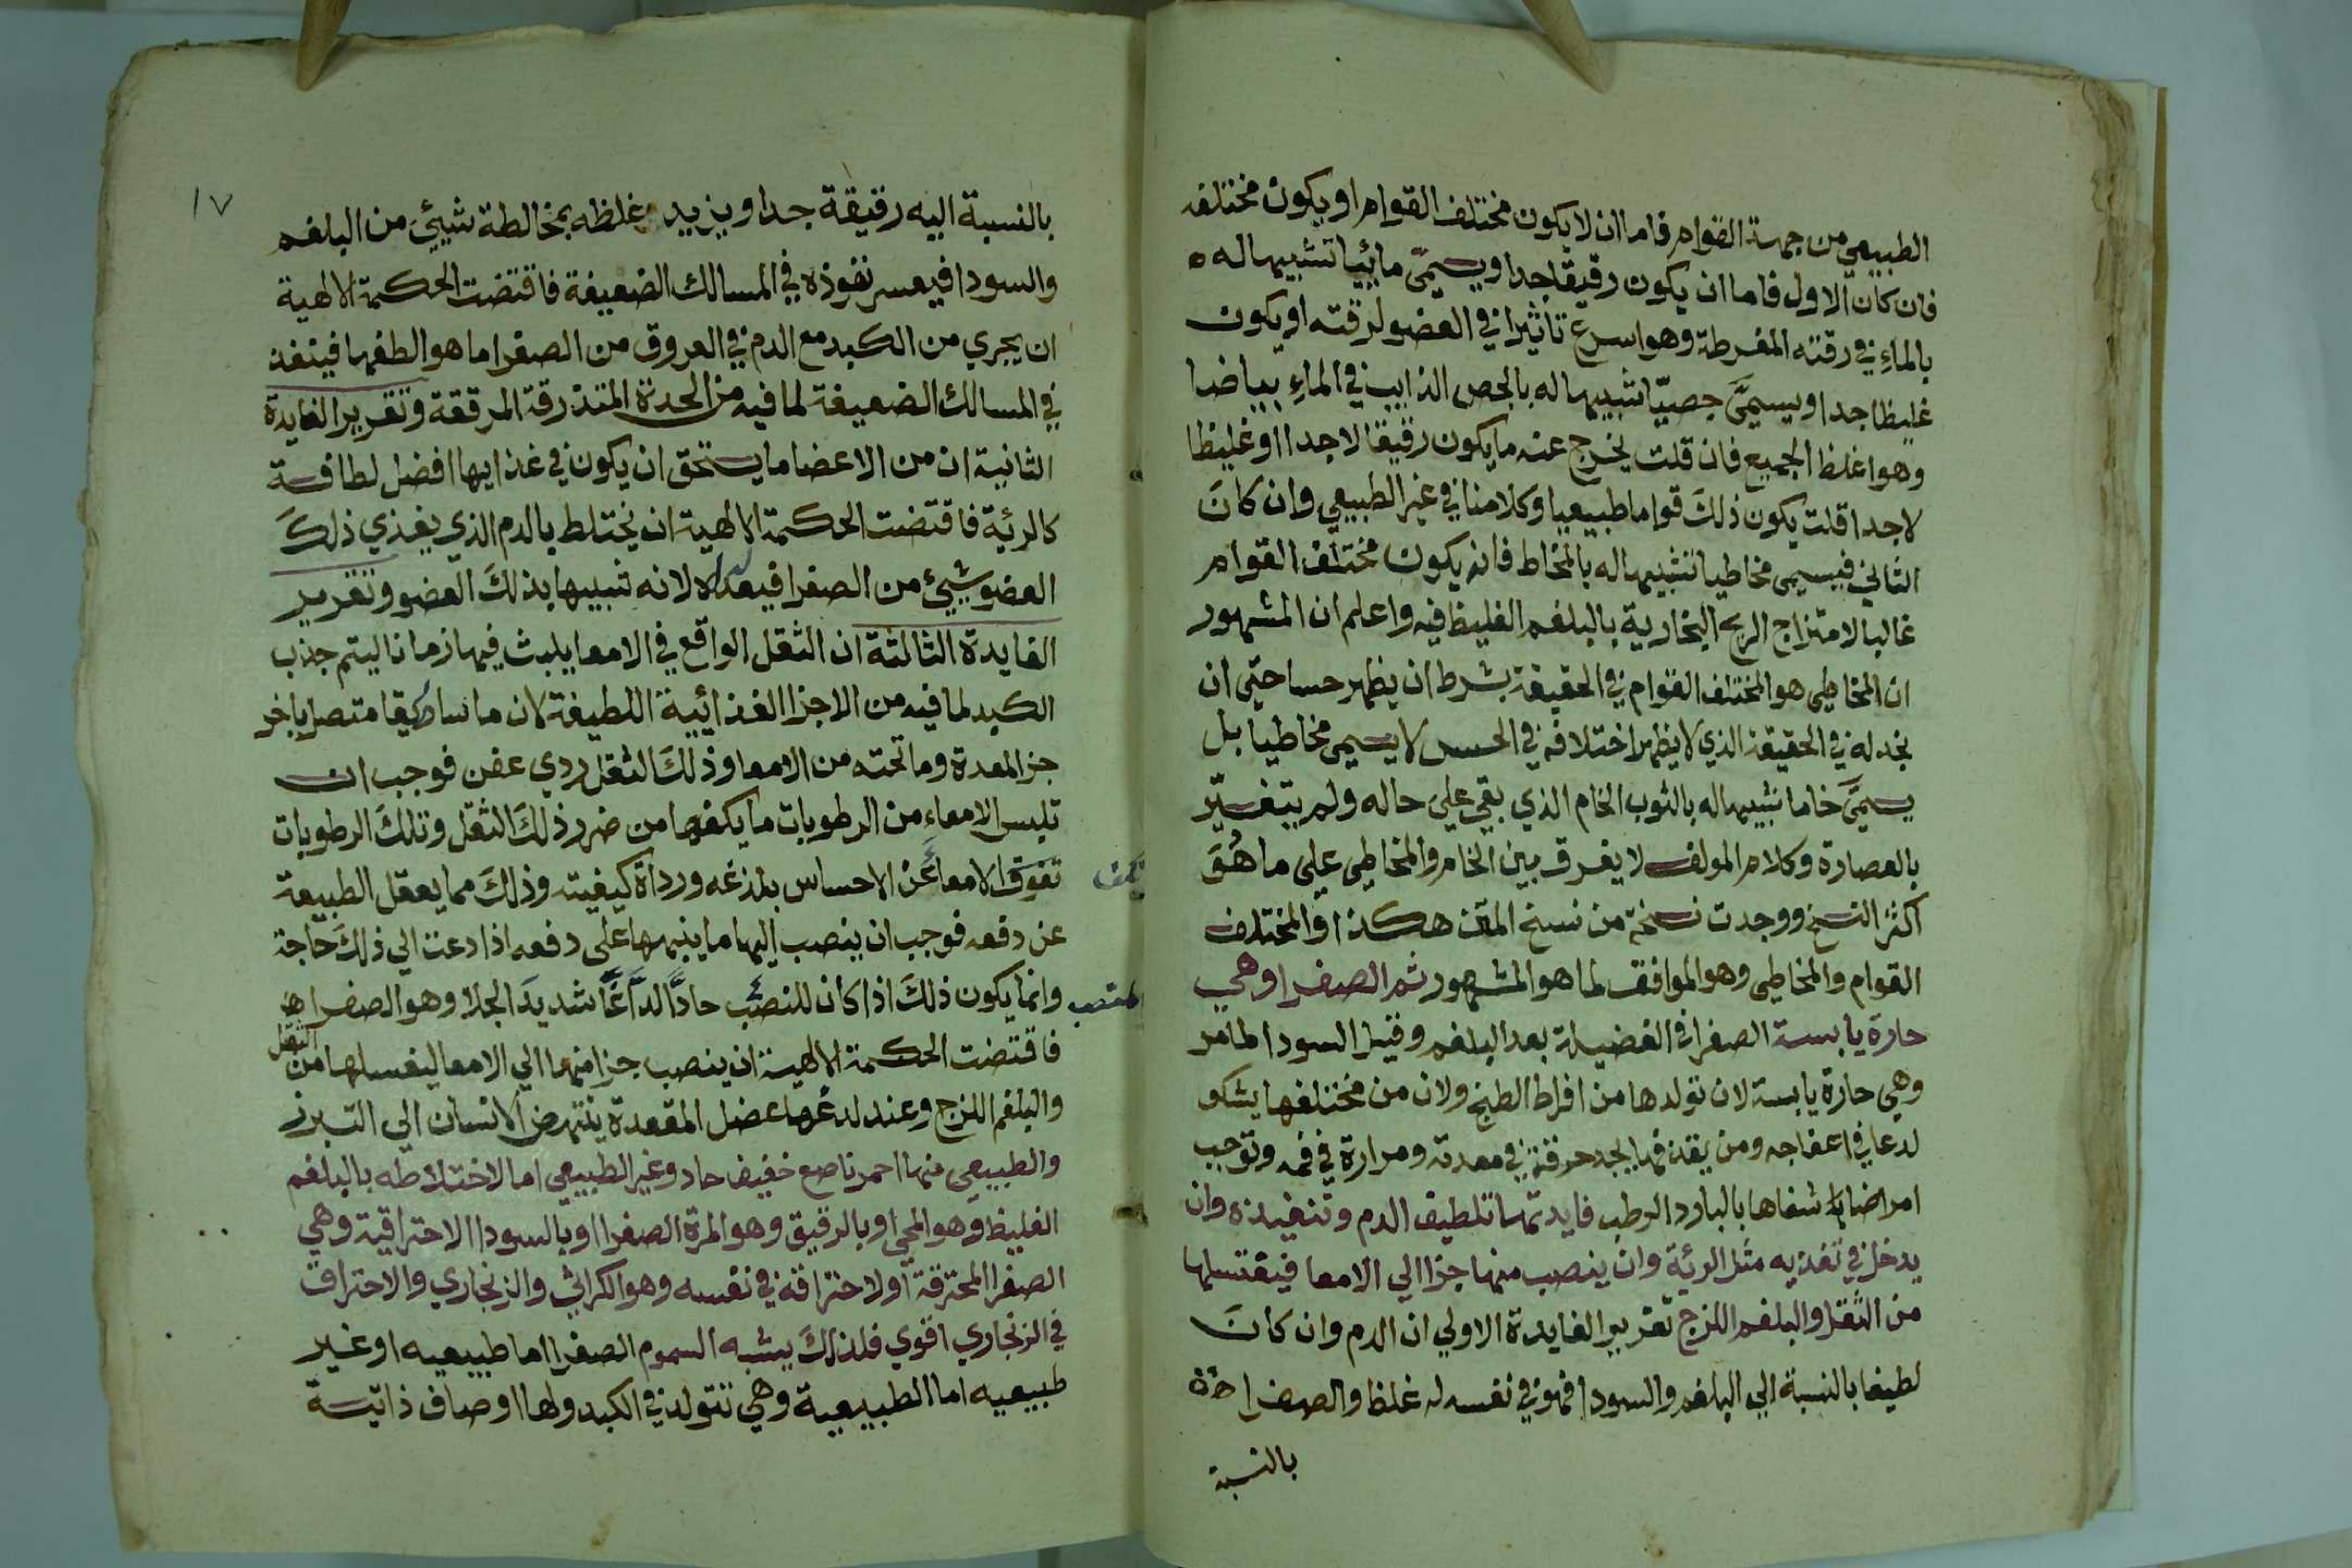 الطبيعي من جهة القوام فاما ان لا يكون مختلف القوام او يكون مختلفه
فان كان الاول فاما ان يكون رقيقا جدا ويسمىّ مائيا تشبيها له ه
بالماءِ في رقته المفرطة وهو اسرع تاثيرا في العضو لرقته او يكون
غليظا جدا ويسمىَّ جصيّا تشبيها له بالجص الذايب في الماءِ بياضا
وهو اغلظ الجميع فان قلت يخرج عنه ما يكون رقيقا لا جدا او غليظا
لا جدا قلت يكون ذلكَ قواما طبيعيا وكلامنا في غير الطبيعي وان كانَ
الثاني فيسمى مخاطيا تشبيها له بالمخاط فانه يكون مختلف القوام
غالبا لامتزاج الريح البخارية بالبلغم الغليظ فيه واعلم ان المشهور
ان المخاطي هو المختلف القوام في الحقيقة بشرط ان يظهر حسا حتى ان
نجد له في الحقيقة الذي لا يظهر اختلافه في الحس لا يسمى مخاطيا بل
يسمىَّ خاما تشبيها له بالثوب الخام الذي بقي على حاله ولم يتغيّر
بالعصارة وكلام المولف لا يفرق بين الخام والمخاطي على ما هُوَ
اكثر النسخ ووجدت نسخة من نسخ المتن هكذا والمختلف
القوام والمخاطي وهو الموافق لما هو المشهور ثم الصفرا وهي
حارة يابسة الصفرا في الفضيلة بعد البلغم وقبل السودا لما مر
وهي حارة يابسة لان تولدها من افراط الطبخ ولان من يختلفها يشكو
لدغا في اعفاجه ومن يقذفها يجد حرقة في معدته ومرارة في فمه وتوجب
امراضا شفاها بالبارد الرطب فايدتها تلطيف الدم وتنفيذه وان
يدخل في تغذيه مثل الرئية وان ينصب منها جزا الي الامعا فيغتسلها
من الثقل والبلغم اللزج تقرير الفايدة الاولي ان الدم وان كانَ
لطيفا بالنسبة الي البلغم والسودا فهو في نفسه له غلظ والصفرا
بالنسبة
١٧
بالنسبة اليه رقيقة جدا ويزيد غلظه بمخالطة شيئ من البلغم
والسودا فيعسر نفوذه في المسالك الضعيفة فاقتضت الحكمة الالهية
ان يجري من الكبد مع الدم في العروق من الصفرا ما هو الطفها فينفذ
في المسالك الضعيفة لما فيه من الحدة رقة المرققة وتقرير الفايدة
الثانية ان من الاعضا ما يستحق ان يكون في غذايها افضل لطافة
كالرئية فاقتضت الحكمة الالهية ان يختلط بالدم الذي يغذي ذلكَ
العضو شيئ من الصفرا لانه شبيها بذلكَ العضو وتقرير
الفايدة الثالثة ان الثقل الواقع في الامعا يلبث فيها زمانا ليتم جذب
الكبد لما فيه من الاجزا الغذائية اللطيفة لان ماساريقا متصل باخر
جز المعدة وما تحته من الامعا وذلكَ الثقل ردي عفن فوجب ان
تلبس الامعاء من الرطوبات ما يكفها من ضرر ذلكَ الثقل وتلكَ الرطوبات
تعوق الامعا عَنْ الاحساس بلذعه ورداة كيفيته وذلكَ مما يعقل الطبيعة
عن دفعه فوجب ان ينصب اليها ما ينبهها على دفعه اذا دعت الي ذلكَ حاجة
وانما يكون ذلكَ اذا كان للنصب حادًّا لذَّاعًا شديدَ الجلا وهو الصفرا
المنصب
فاقتضت الحكمة الالهية ان ينصب جزا منها الي الامعا ليغسلها من
الثقل
والبلغم اللزج وعند لدغها عضل المقعدة ينتهض الانسان الي التبرز
والطبيعي منها احمر ناصع خفيف حاد وغير الطبيعي اما لاختلاطه بالبلغم
الغليظ وهو المحي او بالرقيق وهو المرة الصفرا او بالسودا الاحتراقية وهي
الصفرا المحترقة او لاحتراقة في نفسه وهو الكراثي والزنجاري والاحتراق
في الزنجاري اقوي فلذلكَ يشبه السموم الصفرا اما طبيعيه او غير
طبيعيه اما الطبيعية وهي تتولد في الكبد ولها اوصاف ذاتية